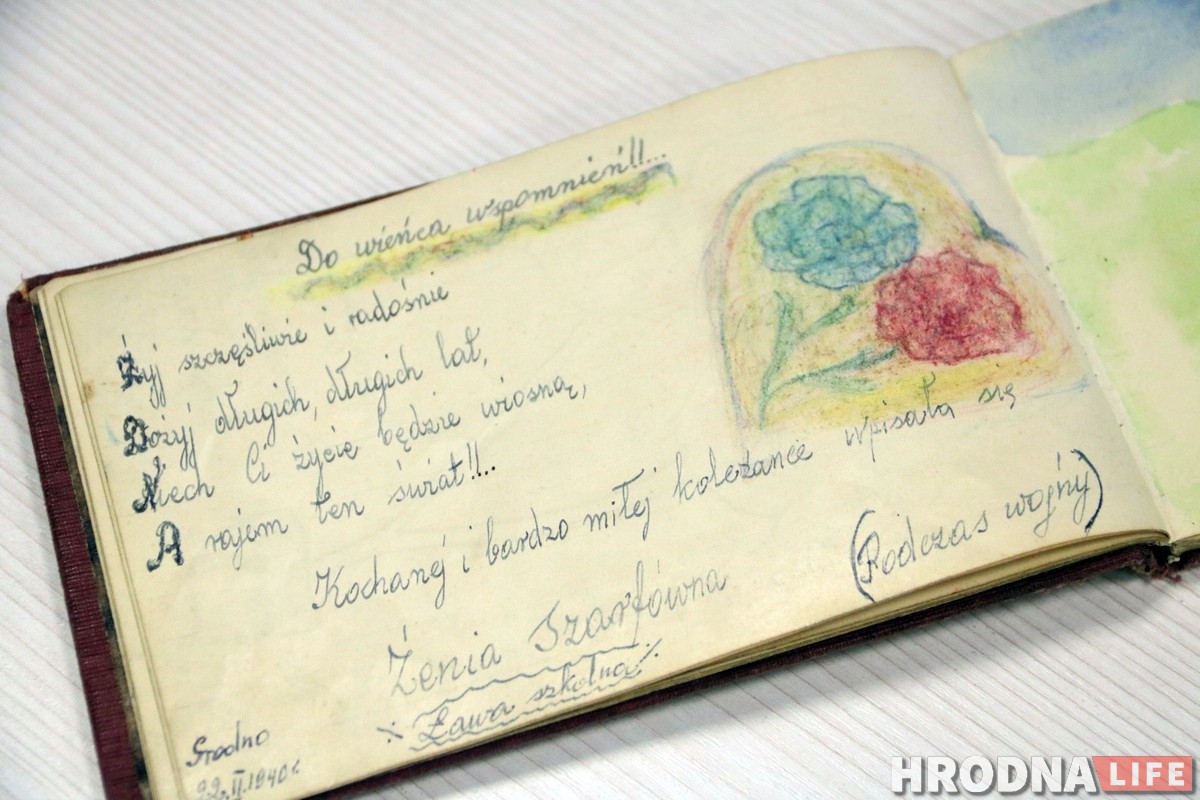 Do wieńca wspomnień!!...
Żyj szczęśliwie i radośnie
Dożyj długich, długich lat,
Niech Ci życie będzie wiosną,
A rajem ten świat!!...
Kochanéj i bardzo miłej koleżance wpisała się
Żenia Szarfówna
(Podczas wojny)
Ława szkolna
Grodno
22.II.1940r.
HRODNA LIFE